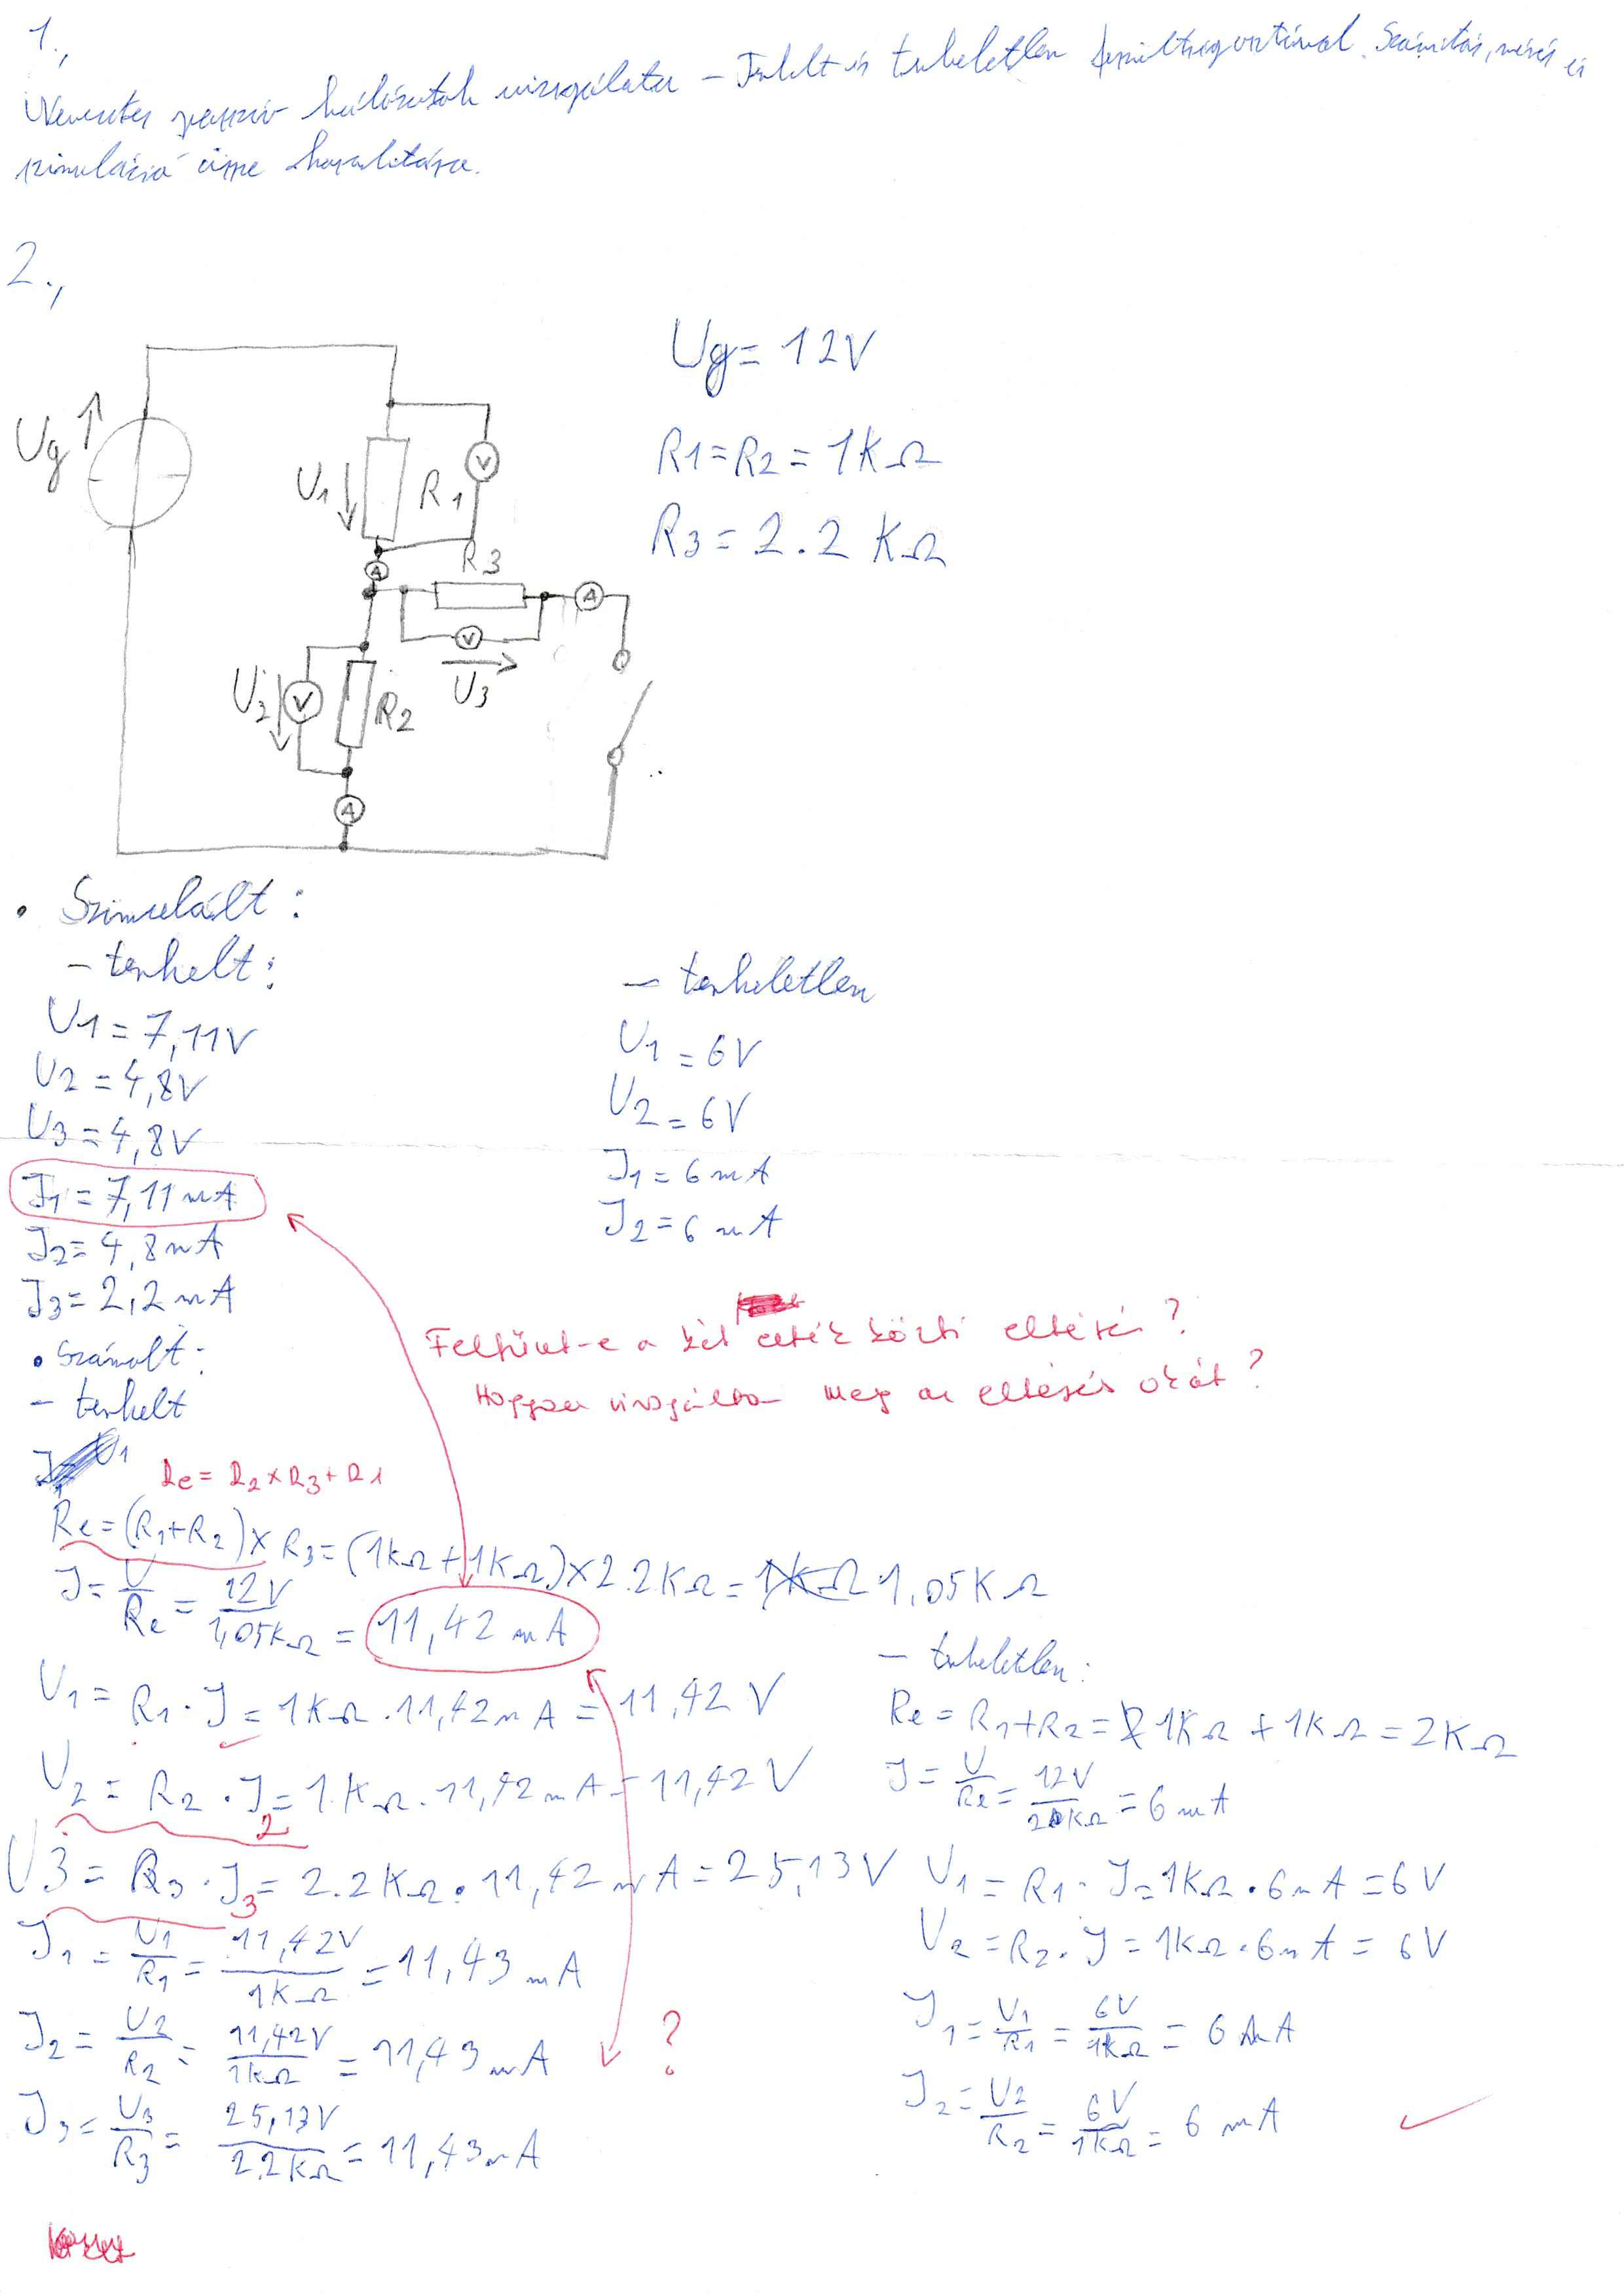 1.,
Nevezetes passzív hálózatok vizsgálata - Terhelt és terheletlen feszültségosztónál. Számítás, mérés és
szimuláció össze hasonlítása.
2.,
Ug
Ug = 12V
R1=R2 = 1KΩ
R3 = 2.2 KΩ
U1
R1
V
A
R3
A
V
U3
U2
V
R2
A
• Szimulált:
- terhelt:
U1 = 7,11V
U2 = 4,8V
U3 = 4,8V
I1 = 7,11 mA
I2 = 4,8 mA
I3 = 2,2 mA
- terheletlen
U1 = 6V
U2 = 6V
I1 = 6 mA
I2 = 6 mA
Feltűnt-e a két érték közti eltérés?
Hogyan vizsgálta meg az eltérés okát?
• Számolt:
- terhelt
Re = R2 x R3 + R1
Re = (R1+R2) x R3 = (1KΩ + 1KΩ) x 2.2KΩ = 1,05KΩ
I = U/Re = 12V/1,05KΩ = 11,42 mA
U1 = R1 · I = 1KΩ · 11,42 mA = 11,42 V
U2 = R2 · I2 = 1KΩ · 11,42 mA = 11,42 V
U3 = R3 · I3 = 2.2KΩ · 11,42 mA = 25,13V
I1 = U1/R1 = 11,42V/1KΩ = 11,43 mA
I2 = U2/R2 = 11,42V/1KΩ = 11,43 mA
?
I3 = U3/R3 = 25,13V/2.2KΩ = 11,43 mA
- terheletlen:
Re = R1+R2 = 1KΩ + 1KΩ = 2KΩ
I = U/Re = 12V/2KΩ = 6 mA
U1 = R1 · I = 1KΩ · 6mA = 6V
U2 = R2 · I = 1KΩ · 6mA = 6V
I1 = U1/R1 = 6V/1KΩ = 6 mA
I2 = U2/R2 = 6V/1KΩ = 6 mA